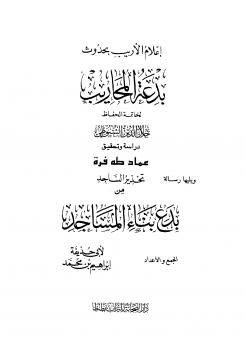 إعلام الأريب بحدوث
بدعة المحاريب
لخاتمة الحفاظ
جلال الدين السيوطي
دراسة وتحقيق
عماد طه فرة
ويليها رسالة
تحذير الساجد
من
بدع بناء المساجد
الجمع والأعداد
لأبي حذيفة
إبراهيم بن محمد
دار الصحابة للتراث بطنطا